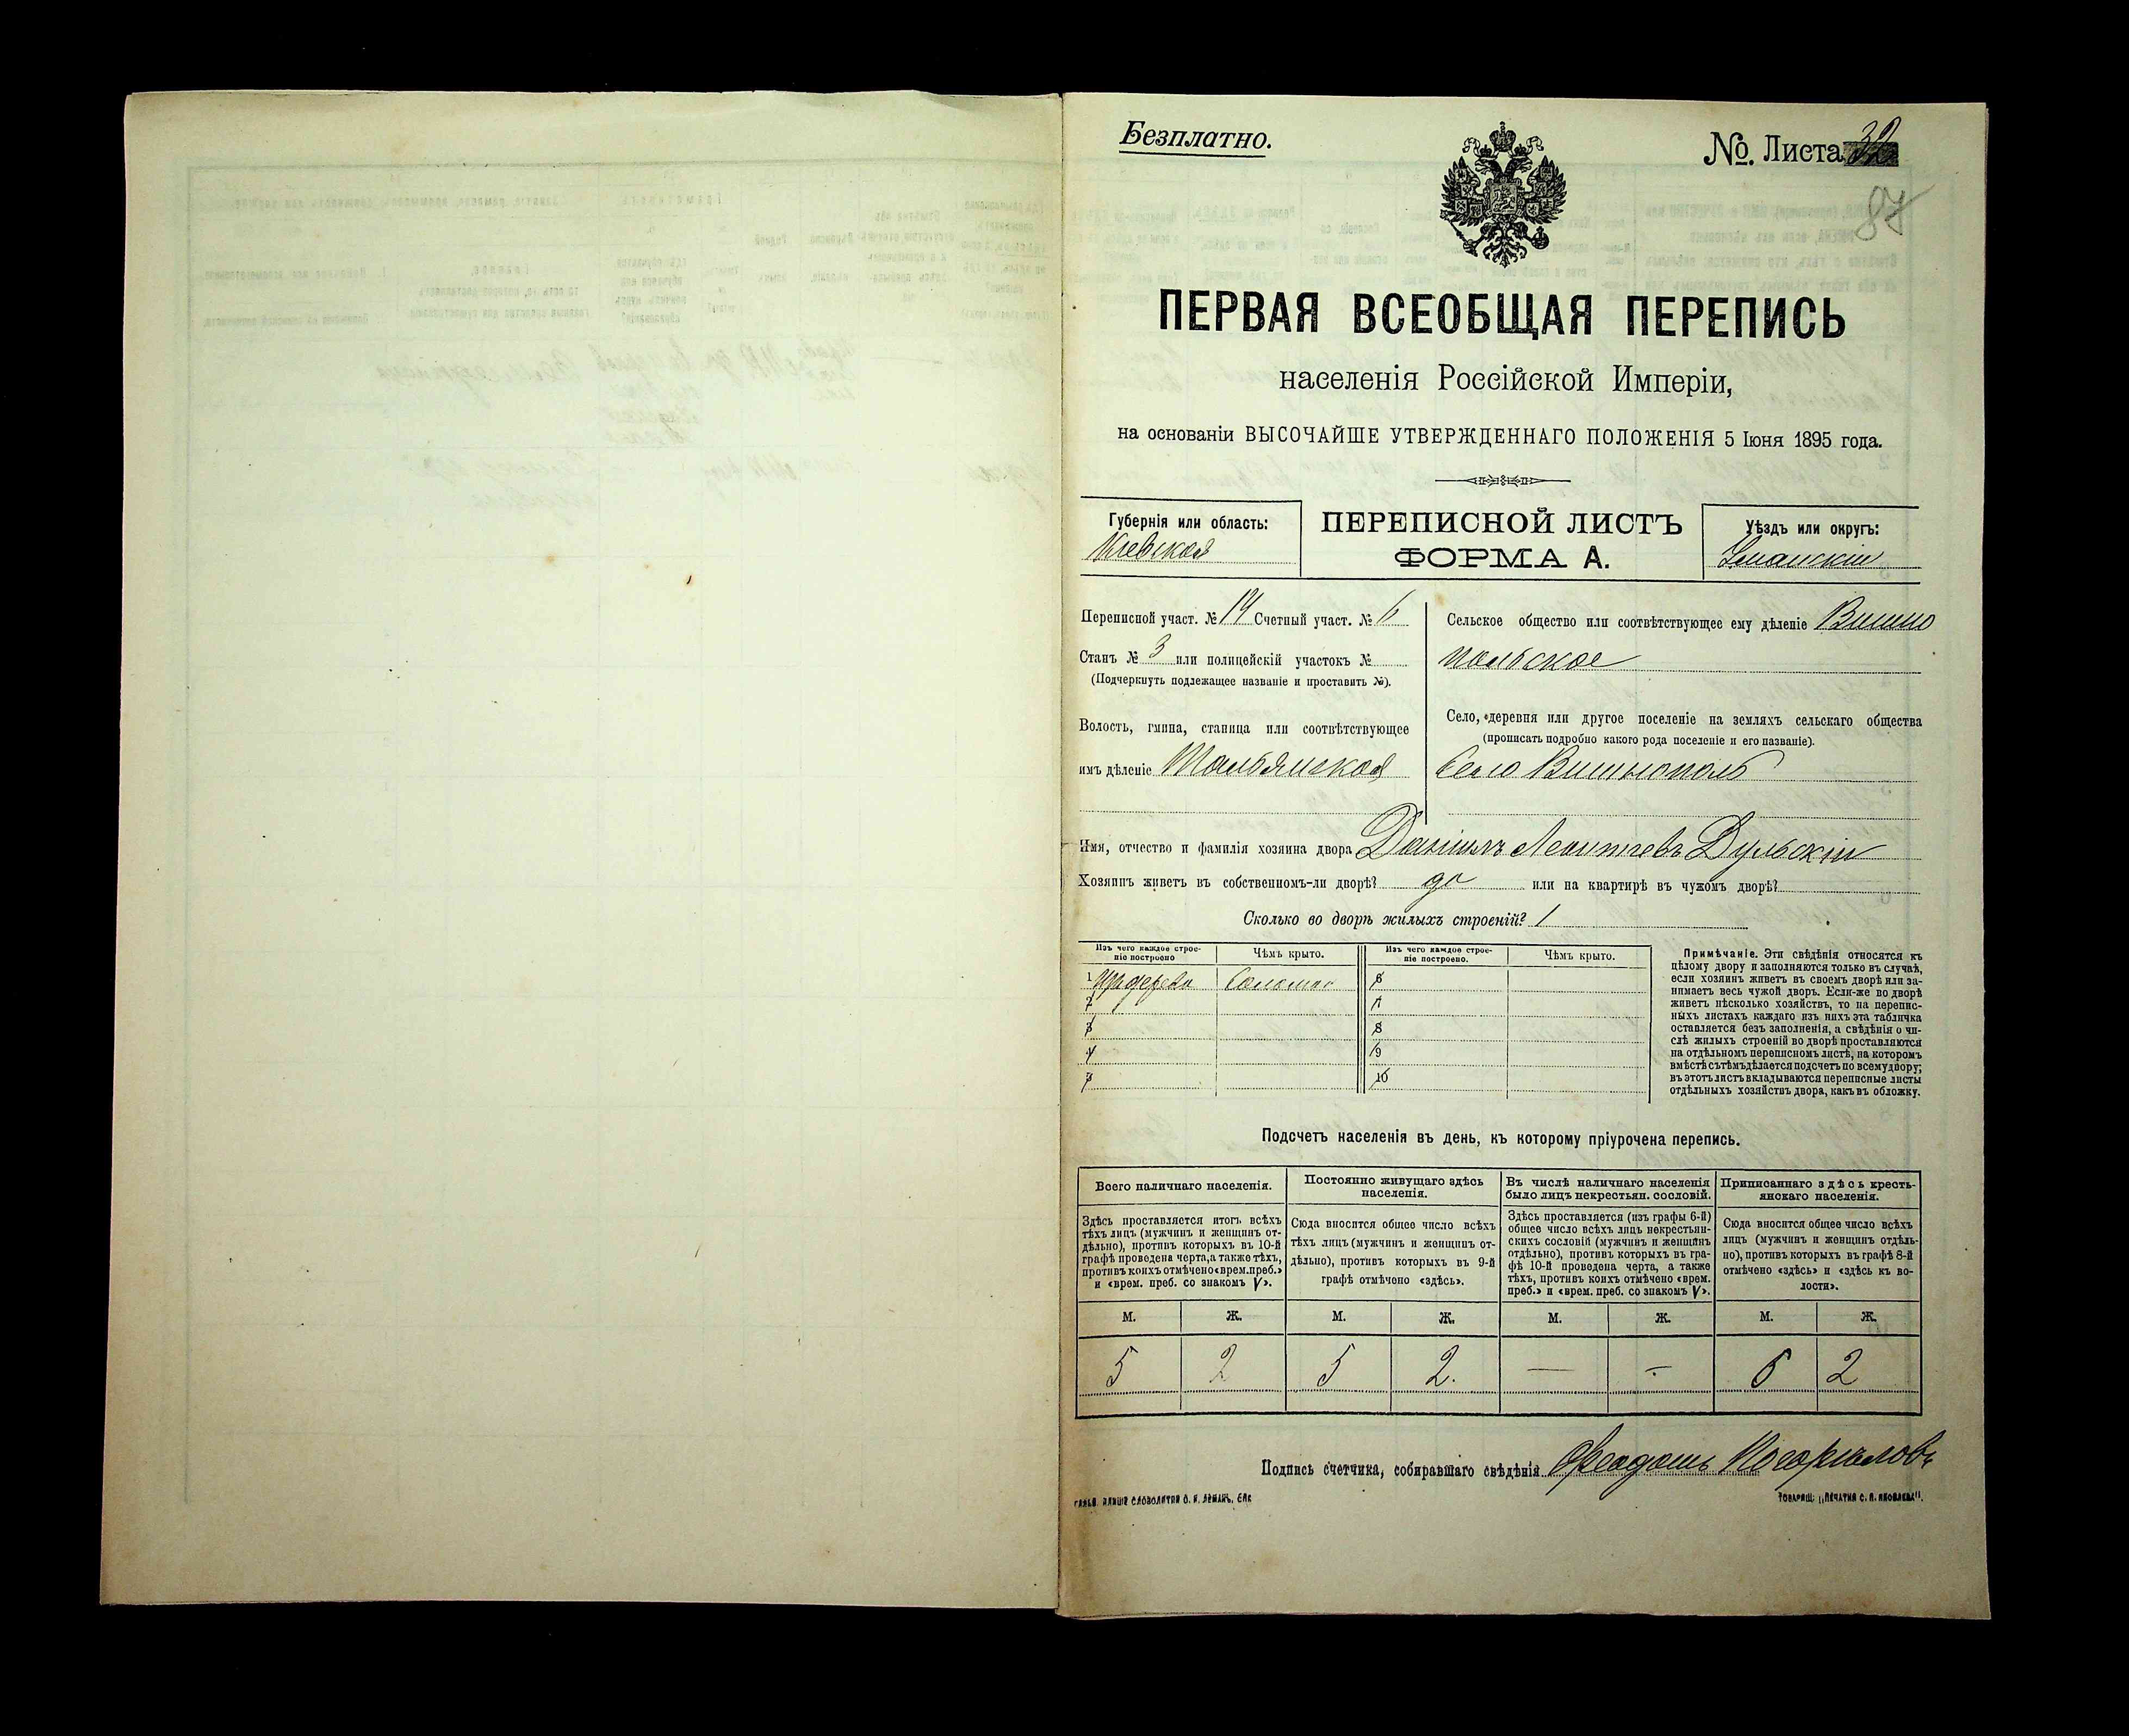 Безплатно.
№. Листа 32
87
ПЕРВАЯ ВСЕОБЩАЯ ПЕРЕПИСЬ
населенія Россійской Имперіи,
на основаніи ВЫСОЧАЙШЕ УТВЕРЖДЕННАГО ПОЛОЖЕНІЯ 5 Іюня 1895 года.
Губернія или область:
Кіевская
ПЕРЕПИСНОЙ ЛИСТЪ
ФОРМА А.
Уѣздъ или округъ:
Уманскій
Переписной участ. № 14 Счетный участ. № 6
Станъ № 3 или полицейскій участокъ №
(Подчеркнуть подлежащее названіе и проставить №).
Волость, гмина, станица или соотвѣтствующее
имъ дѣленіе Тальянская
Сельское общество или соотвѣтствующее ему дѣленіе Вишно
польское
Село, деревня или другое поселеніе на земляхъ сельскаго общества
(прописать подробно какого рода поселеніе и его названіе).
Село Вишнополь
Имя, отчество и фамилія хозяина двора Даніилъ Леонтіевъ Дульскій
Хозяинъ живетъ въ собственномъ-ли дворѣ? да или на квартирѣ въ чужомъ дворѣ?
Сколько во дворѣ жилыхъ строеній? 1
Изъ чего каждое строе-
ніе построено
Чѣмъ крыто.
Изъ чего каждое строе-
ніе построено.
Чѣмъ крыто.
1 Соломою 6
2 7
3 8
4 9
5 10
Примѣчаніе. Эти свѣдѣнія относятся къ
цѣлому двору и заполняются только въ случаѣ,
если хозяинъ живетъ въ своемъ дворѣ или за-
нимаетъ весь чужой дворъ. Если-же во дворѣ
живетъ нѣсколько хозяйствъ, то на перепис-
ныхъ листахъ каждаго изъ нихъ эта табличка
оставляется безъ заполненія, а свѣдѣнія о чи-
слѣ жилыхъ строеній во дворѣ проставляются
на отдѣльномъ переписномъ листѣ, на которомъ
вмѣстѣ съ тѣмъ дѣлается подсчетъ по всему двору;
въ этотъ листъ вкладываются переписные листы
отдѣльныхъ хозяйствъ двора, какъ въ обложку.
Подсчетъ населенія въ день, къ которому пріурочена перепись.
Всего наличнаго населенія.
Здѣсь проставляется итогъ всѣхъ
тѣхъ лицъ (мужчинъ и женщинъ от-
дѣльно), противъ которыхъ въ 10-й
графѣ проведена черта, а также тѣхъ,
противъ коихъ отмѣчено «врем. преб.»
и «врем. преб. со знакомъ V».
Постоянно живущаго здѣсь
населенія.
Сюда вносится общее число всѣхъ
тѣхъ лицъ (мужчинъ и женщинъ от-
дѣльно), противъ которыхъ въ 9-й
графѣ отмѣчено «здѣсь».
Въ числѣ наличнаго населенія
было лицъ некрестьян. сословій.
Здѣсь проставляется (изъ графы 6-й)
общее число всѣхъ лицъ некрестьян-
скихъ сословій (мужчинъ и женщинъ
отдѣльно), противъ которыхъ въ гра-
фѣ 10-й проведена черта, а также
тѣхъ, противъ коихъ отмѣчено «врем.
преб.» и «врем. преб. со знакомъ V».
Приписаннаго здѣсь кресть-
янскаго населенія.
Сюда вносится общее число всѣхъ
лицъ (мужчинъ и женщинъ отдѣль-
но), противъ которыхъ въ графѣ 8-й
отмѣчено «здѣсь» и «здѣсь къ во-
лости».
М. Ж. М. Ж. М. Ж. М. Ж.
5 2 5 2. — — 5 2
Подпись счетчика, собиравшаго свѣдѣнія Ѳеодосій Погорѣловъ
ТОВАРИЩ. „ПЕЧАТНЯ С. П. ЯКОВЛЕВА".